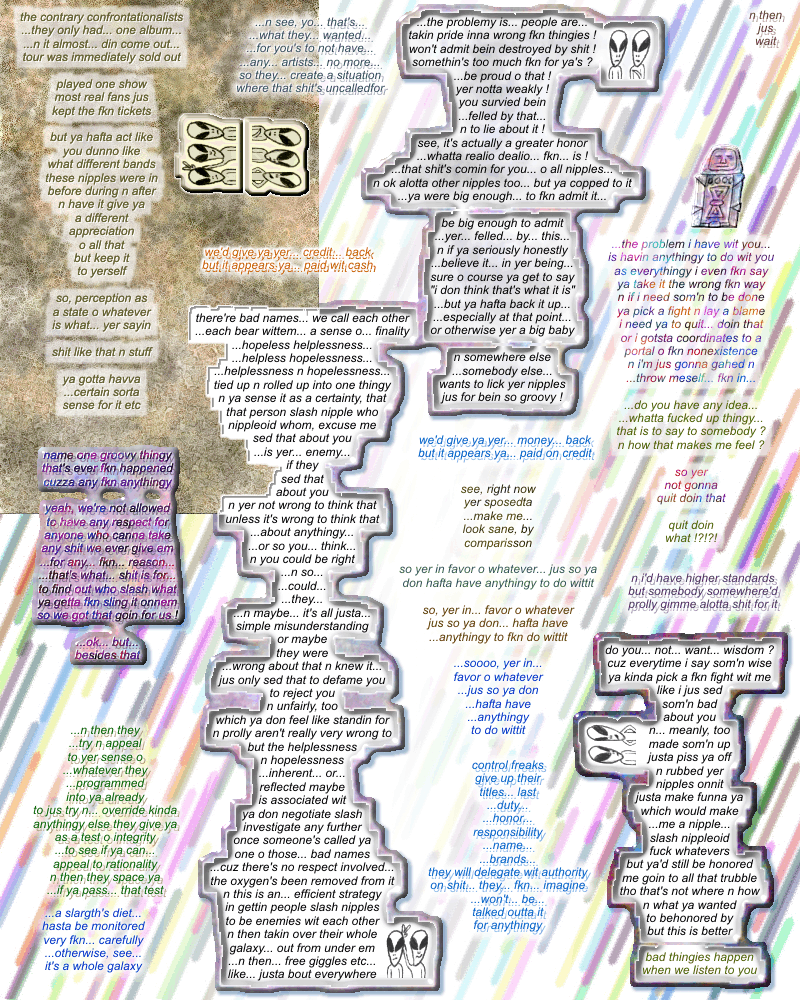 the contrary confrontationalists
...they only had... one album...
...n it almost... din come out...
tour was immediately sold out
played one show
most real fans jus
kept the fkn tickets
but ya hafta act like
you dunno like
what different bands
these nipples were in
before during n after
n have it give ya
a different
appreciation
o all that
but keep it
to yerself
so, perception as
a state o whatever
is what... yer sayin
shit like that n stuff
ya gotta havva
...certain sorta
sense for it etc
name one groovy thingy
that's ever fkn happened
cuzza any fkn anythingy
yeah, we're not allowed
to have any respect for
anyone who canna take
any shit we ever give em
...for any... fkn... reason...
...that's what... shit is for...
to find out who slash what
ya getta fkn sling it onnem
so we got that goin for us !
...ok... but...
besides that
...n then they
...try n appeal
to yer sense o
...whatever they
...programmed
into ya already
to jus try n... override kinda
anythingy else they give ya
as a test o integrity
...to see if ya can...
appeal to rationality
n then they space ya
...if ya pass... that test
...a slargth's diet...
hasta be monitored
very fkn... carefully
...otherwise, see...
it's a whole galaxy
...n see, yo... that's...
...what they... wanted...
...for you's to not have...
...any... artists... no more...
so they... create a situation
where that shit's uncalledfor
we'd give ya yer... credit... back
but it appears ya... paid wit cash
there're bad names... we call each other
...each bear wittem... a sense o... finality
...hopeless helplessness...
...helpless hopelessness...
...helplessness n hopelessness...
tied up n rolled up into one thingy
n ya sense it as a certainty, that
that person slash nipple who
nippleoid whom, excuse me
sed that about you
...is yer... enemy...
if they
sed that
about you
n yer not wrong to think that
unless it's wrong to think that
...about anythingy...
...or so you... think...
n you could be right
...n so...
...could...
...they...
...n maybe... it's all justa...
simple misunderstanding
or maybe
they were
...wrong about that n knew it...
jus only sed that to defame you
to reject you
n unfairly, too
which ya don feel like standin for
n prolly aren't really very wrong to
but the helplessness
n hopelessness
...inherent... or...
reflected maybe
is associated wit
ya don negotiate slash
investigate any further
once someone's called ya
one o those... bad names
...cuz there's no respect involved...
the oxygen's been removed from it
n this is an... efficient strategy
in gettin people slash nipples
to be enemies wit each other
n then takin over their whole
galaxy... out from under em
...n then... free giggles etc...
like... justa bout everywhere
...the problemy is... people are...
takin pride inna wrong fkn thingies !
won't admit bein destroyed by shit !
somethin's too much fkn for ya's ?
...be proud o that !
yer notta weakly !
you survied bein
...felled by that...
n to lie about it !
see, it's actually a greater honor
...whatta realio dealio... fkn... is !
...that shit's comin for you... o all nipples...
n ok alotta other nipples too... but ya copped to it
...ya were big enough... to fkn admit it...
be big enough to admit
...yer... felled... by... this...
n if ya seriously honestly
...believe it... in yer being...
sure o course ya get to say
"i don think that's what it is"
...but ya hafta back it up...
...especially at that point...
or otherwise yer a big baby
n somewhere else
...somebody else...
wants to lick yer nipples
jus for bein so groovy !
we'd give ya yer... money... back
but it appears ya... paid on credit
see, right now
yer sposedta
...make me...
look sane, by
comparisson
so yer in favor o whatever... jus so ya
don hafta have anythingy to do wittit
so, yer in... favor o whatever
jus so ya don... hafta have
...anythingy to fkn do wittit
...soooo, yer in...
favor o whatever
...jus so ya don
...hafta have
...anythingy
to do wittit
control freaks
give up their
titles... last
...duty...
...honor...
responsibility
...name...
...brands...
they will delegate wit authority
on shit... they... fkn... imagine
...won't... be...
talked outta it
for anythingy
n then
jus
wait
...the problem i have wit you...
is havin anythingy to do wit you
as everythingy i even fkn say
ya take it the wrong fkn way
n if i need som'n to be done
ya pick a fight n lay a blame
i need ya to quit... doin that
or i gotsta coordinates to a
portal o fkn nonexistence
n i'm jus gonna gahed n
...throw meself... fkn in...
...do you have any idea...
...whatta fucked up thingy...
that is to say to somebody ?
n how that makes me feel ?
so yer
not gonna
quit doin that
quit doin
what !?!?!
n i'd have higher standards
but somebody somewhere'd
prolly gimme alotta shit for it
do you... not... want... wisdom ?
cuz everytime i say som'n wise
ya kinda pick a fkn fight wit me
like i jus sed
som'n bad
about you
n... meanly, too
made som'n up
justa piss ya off
n rubbed yer
nipples onnit
justa make funna ya
which would make
...me a nipple...
slash nippleoid
fuck whatevers
but ya'd still be honored
me goin to all that trubble
tho that's not where n how
n what ya wanted
to behonored by
but this is better
bad thingies happen
when we listen to you